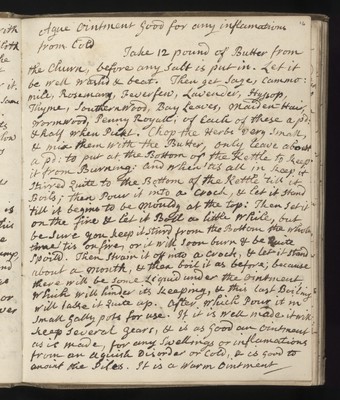 Ague Ointment Good for any inflamations
from Cold
Take 12 pound of Butter from
the Churn, before any salt is put in. Let it
be well washd & beat. Then get Sage, Cammo:
mile, Rosemary, Feverfew, Lavender, Hyssop,
Thyme, Southernwood, Bay Leaves, Maiden Hair,
Wormwood, Penny Royall; of Each of these a po:
& half when Pickt. Chop the Herbs very Small,
& mix them with the Butter, only leave about
a po: to put at the Bottom of the Kettle to keep
it from Burning: and when tis all in keep it
Stirred quite to the Bottom of the Kettle till it
Boils; then Pour it into a Crock, & let it Stand
till it begins to be Mouldy at the top: Then Set it
on the fire & let it Boill a little While, but
be Sure you keep it Sturd from the Bottom the whole
time tis on fire, or it will soon burn & be quite
Spoild. Then Strain it off into a Crock, & let it Stand
about a Month, & then boil it as before; because
there will be Some Liquid under the Ointment
Which will hinder its keeping, & this last Boiling
will take it quite up. After Which Pour it in
Small Gally pots for use. If it is well made it will
keep Several years, & it is as Good an Ointment
as is made, for any Swellings or inflamations
from an aguish Disorder or Cold, & is Good to
anoint the Piles. It is a Warm Ointment